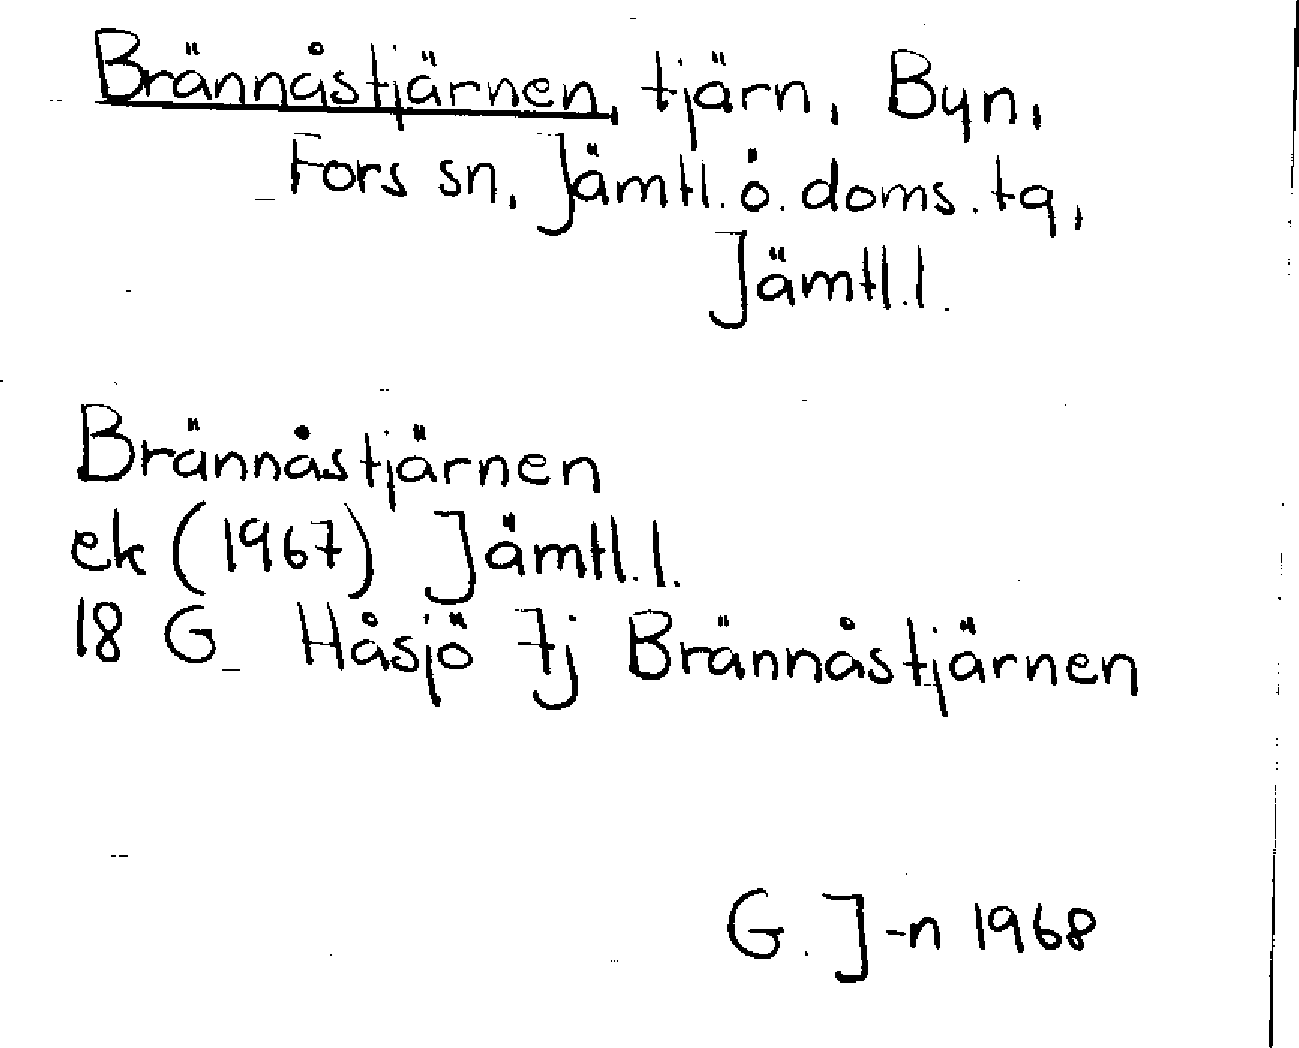 Brännåstjärnen, tjärn, Byn,
Fors sn, Jämtl. ö. doms. tg,
Jämtl. l.
Brännåstjärnen
ek (1967) Jämtl. l.
18 G Håsjö 7j Brännåstjärnen
G. J-n 1968